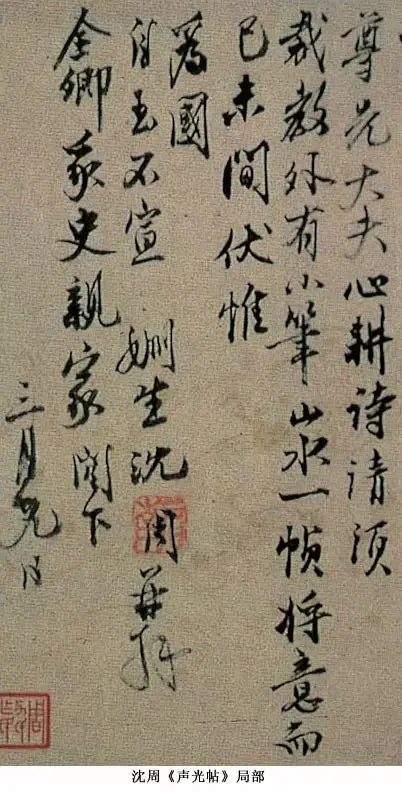 尊先大夫心耕詩請須
裁教外有小筆山水一幀將意而
已未間伏惟
為國
自玉不宣 姻生沈周再拜
全卿豸史親家閣下
三月日
沈周《声光帖》局部